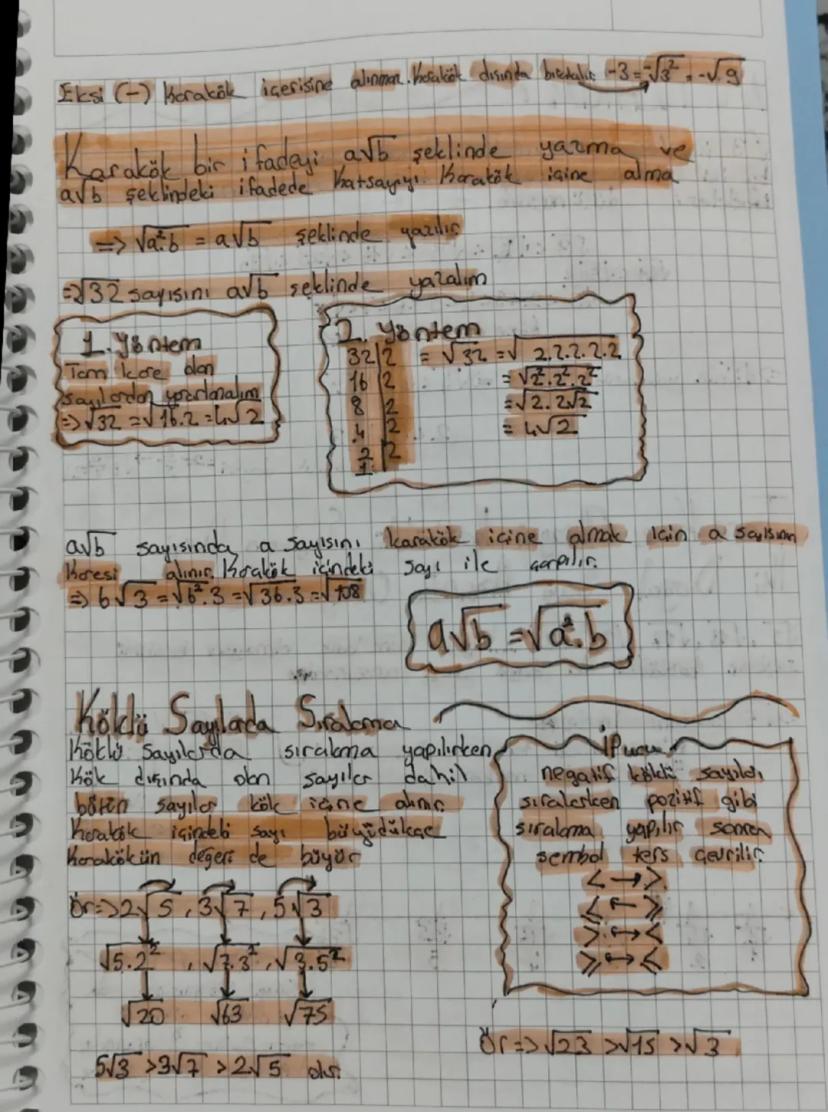 Eksi (-) karakök içerisine alınmaz. Karakök dışında bırakılır -3 = -√3² = -√9
Karakök bir ifadeyi a√b şeklinde yazma ve
a√b şeklindeki ifadede katsayıyı karakök içine alma
⇒ √a².b = a√b şeklinde yazılır
⇒ √32 sayısını a√b şeklinde yazalım
1. Yöntem
Tam kare olan
sayılardan yararlanalım
⇒ √32 = √16.2 = 4√2
2. Yöntem
32 | 2 = √32 = √2.2.2.2.2
16 | 2 = √2².2².2
8 | 2 = √2.2√2
4 | 2 = 4√2
2 | 2
1
a√b sayısında a sayısını karakök içine almak için a sayısının
karesi alınır. Karakök içindeki sayı ile çarpılır.
⇒ 6√3 = √6².3 = √36.3 = √108
a√b = √a².b
Köklü Sayılarda Sıralama
Köklü sayılarda sıralama yapılırken
kök dışında olan sayılar dahil
bütün sayılar kök içine alınır
Karakök içindeki sayı büyüdükçe
karakökün değeri de büyür
Ör => 2√5, 3√7, 5√3
√5.2², √7.3², √3.5²
√20 √63 √75
5√3 > 3√7 > 2√5 olur
İpucu
negatif köklü sayıları
sıralarken pozitif gibi
sıralama yapılır sonra
sembol ters çevrilir.
< → >
≤ ↔ ≥
> ↔ <
≥ ↔ ≤
Ör => √23 > √15 > √3